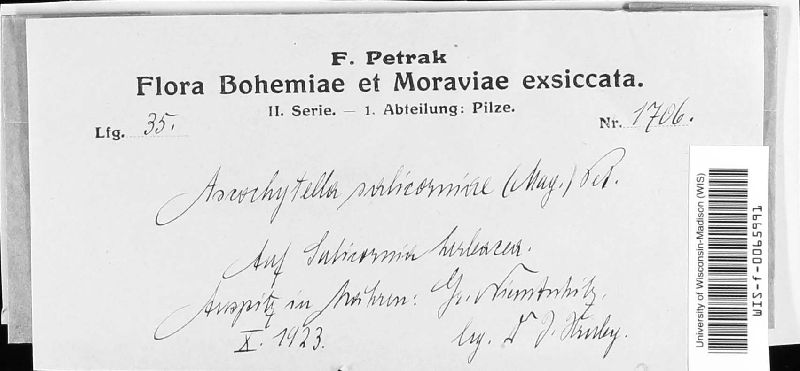 F. Petrak
Flora Bohemiae et Moraviae exsiccata.
II. Serie. — 1. Abteilung: Pilze.
Lfg. 35.
Nr. 1706.
Ascochytella salicorniae (Mag.) Pet.
Auf Salicornia herbacea.
Auspitz in Mähren: Gr. Niemtschitz.
X. 1923.
leg. Dr J. Hruby.
University of Wisconsin-Madison (WIS)
WIS-f-0065991